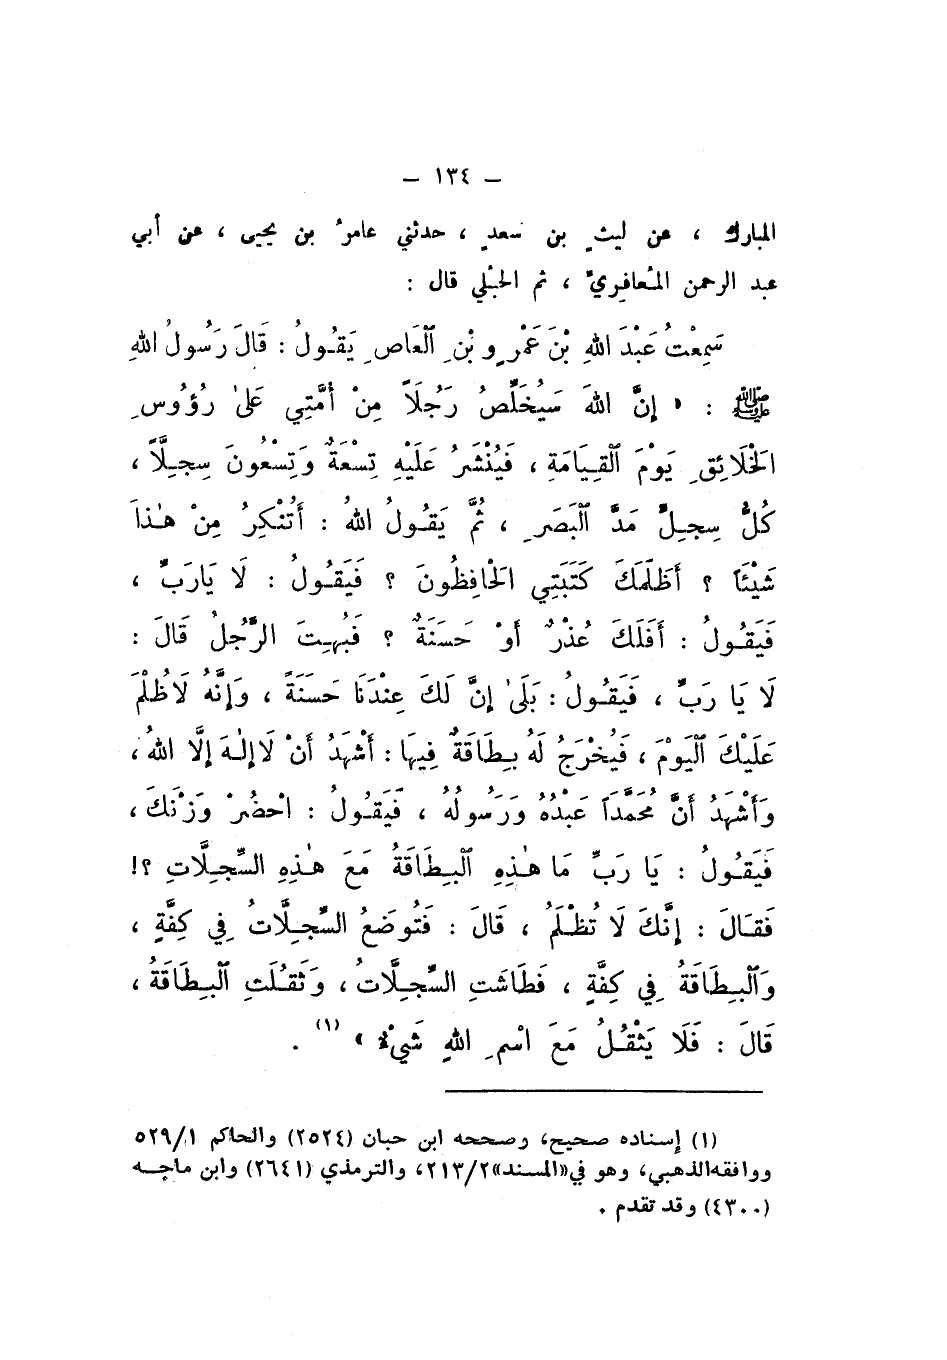 – ١٣٤ –
المبارك ، عن ليثِ بن سعدٍ ، حدثني عامرُ بن يحيى ، عن أبي
عبد الرحمن المُعافِريِّ ، ثم الحبْلي قال :
سَمِعْتُ عَبْدَ اللهِ بْنَ عَمْرِو بْنِ ٱلْعَاصِ يَقُولُ : قَالَ رَسُولُ اللهِ
ﷺ : « إِنَّ اللهَ سَيُخَلِّصُ رَجُلَاً مِنْ أُمَّتِي عَلىٰ رُؤُوسِ
الْخَلَائِقِ يَوْمَ ٱلْقِيَامَةِ ، فَيُنْشَرُ عَلَيْهِ تِسْعَةٌ وَتِسْعُونَ سِجِلَّاً ،
كُلُّ سِجِلٍّ مَدَّ ٱلْبَصَرِ ، ثُمَّ يَقُولُ اللهُ : أَتُنْكِرُ مِنْ هٰذَا
شَيْئَاً ؟ أَظَلَمَكَ كَتَبَتِي الْحَافِظُونَ ؟ فَيَقُولُ : لَا يَارَبِّ ،
فَيَقُولُ : أَفَلَكَ عُذْرٌ أَوْ حَسَنَةٌ ؟ فَبُهِتَ الرَّجُلُ قَالَ :
لَا يَا رَبِّ ، فَيَقُولُ : بَلَىٰ إِنَّ لَكَ عِنْدَنَا حَسَنَةً ، وَإِنَّهُ لَاظُلْمَ
عَلَيْكَ ٱلْيَوْمَ ، فَيُخْرَجُ لَهُ بِطَاقَةٌ فِيهَا : أَشْهَدُ أَنْ لَاإِلٰهَ إِلَّا اللهُ ،
وَأَشْهَدُ أَنَّ مُحَمَّدَاً عَبْدُهُ وَرَسُولُهُ ، فَيَقُولُ : احْضُرْ وَزْنَكَ ،
فَيَقُولُ : يَا رَبِّ مَا هٰذِهِ ٱلْبِطَاقَةُ مَعَ هٰذِهِ السِّجِلَّاتِ ؟!
فَقَالَ : إِنَّكَ لَا تُظْلَمُ ، قَالَ : فَتُوضَعُ السِّجِلَّاتُ فِي كِفَّةٍ ،
وَٱلْبِطَاقَةُ فِي كِفَّةٍ ، فَطَاشَتِ السِّجِلَّاتُ ، وَثَقُلَتِ ٱلْبِطَاقَةُ ،
قَالَ : فَلَا يَثْقُلُ مَعَ اسْمِ اللهِ شَيْءٌ » (١) .
(١) إسناده صحيح، وصححه ابن حبان (٢٥٢٤) والحاكم ٥٢٩/١
ووافقه الذهبي، وهو في «المسند» ٢١٣/٢، والترمذي (٢٦٤١) وابن ماجه
(٤٣٠٠) وقد تقدم .